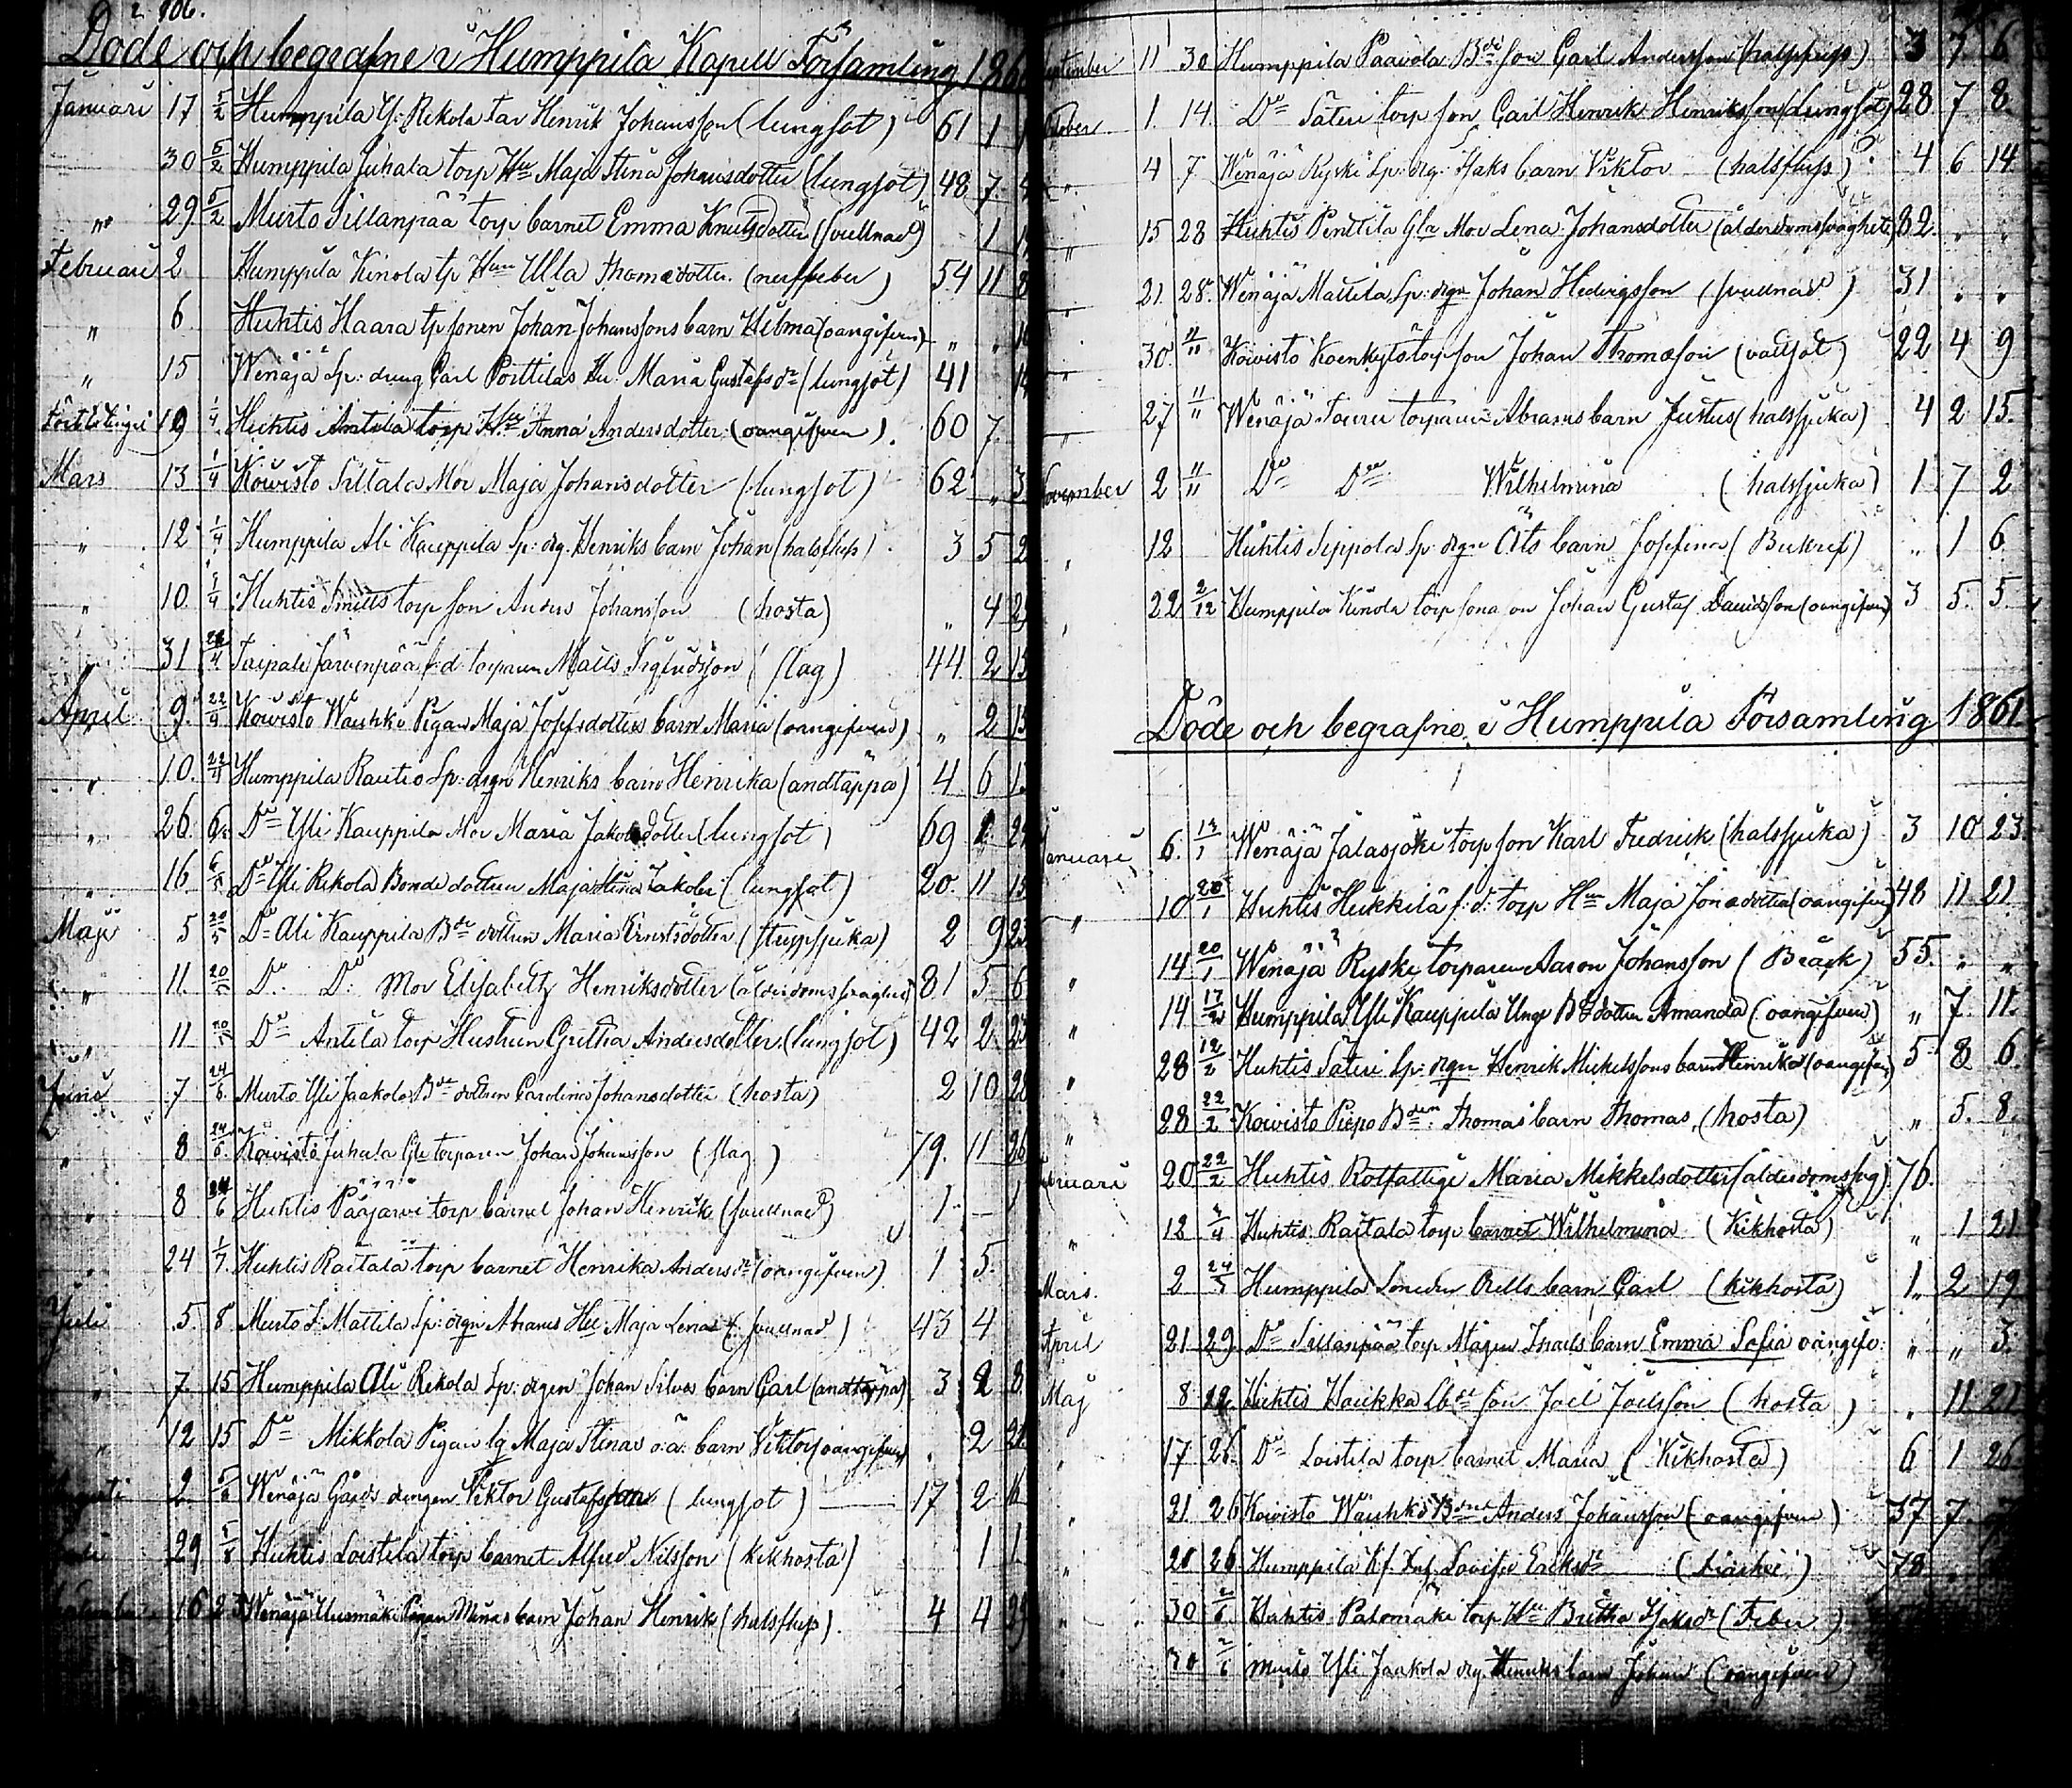 2. 906.
Döde och begrafne i Humppila Kapell Församling 186
Januari 17 5/2 Humppila Y: Rekola Far Henrik Johansson (lungsot) 61 1
30 5/2 Humppila Juhala torp Hu Maja Stina Johansdotter (lungsot) 48 7
" 29 5/2 Murto Sillanpää torp barnet Emma Knutsdotter (svullnad) 1
Februari 2 Humppila Kinola tp Hun Ulla Thomædotter (nerffeber) 54 11 8
" 6 Huhtis Haara tp sonen Johan Johanssons barn Hilma (oangifven) " "
" 15 Wenäjä Sp: dräng Carl Porttilas Hu Maria Gustafsdr (lungsot) 41
19 1/4 Huhtis Antila torp Hu Anna Andersdotter (oangifven) 60 7
Mars 13 1/4 Koivisto Sillala Mor Maja Johansdotter (lungsot) 62 " 3
" 12 1/4 Humppila Ali Kauppila Sp: drg. Henriks barn Johan (halsfluss) 3 5 2
" 10 1/4 Huhtis Smitts torp son Anders Johansson (hosta) " 4 2
" 31 22/4 Taipale Järvenpää f:d: torparen Matts Sigfridsson (slag) 44 2 15
April 9 22/4 Koivisto Waishko Pigan Maja Josefsdotters barn Maria (oangifven) " 2 15
" 10 22/4 Humppila Rautio Sp: drgn Henriks barn Henrika (andtäppa) 4 6 1
" 26 6/5 Do Yli Kauppila Mor Maria Jakobsdotter (lungsot) 69
" 16 6/5 Do Yli Rekola Bonde dottren Maja Stina Jakobs (lungsot) 20 11 13
Maji 5 20/5 Do Ali Kauppila Bde dottren Maria Ernstsdotter (strypsjuka) 2 9 2
" 11 20/5 Do Do Mor Elisabeth Henriksdotter (ålderdomssvaghet) 81 5 6
" 11 20/5 Do Antila torp Hustrun Gretha Andersdotter (lungsot) 42 2 23
Junii 7 24/6 Murto Yli Jaakola Bde dottren Carolina Johansdotter (hosta) 2 10 28
" 8 24/6 Koivisto Juhala Gle torparen Johan Johansson (slag) 79 11 26
" 8 24/6 Huhtis Pääjärvi torp barnet Johan Henrik (svullnad) 1 — 1
" 24 1/7 Huhtis Raitala torp barnet Henrika Andersdr (oangifven) 1 5
Juli 5 8 Murto S: Mattila Sp: drgn Abrams Hu Maja Lena (svullnad) 43 4
" 7 15 Humppila Ali Rekola Sp: drgen Johan Silvos barn Carl (andtäppa) 3 2 8
" 12 15 Do Mikkola Pigan lg Maja Stinas o:ä: barn Viktor (oangifven) 2 21
Augusti 2 5/8 Wenäjä Gårds drengen Viktor Gustafsson (lungsot) 17 2
29 5/8 Huhtis Loistila torp barnet Alfred Nilsson (kikhosta) 1 1
16 23 Wenäjä Uusmäki Pigan Minas barn Johan Henrik (halsfluss) 4 4 29
September 11 30 Humppila Paavola Bde son Carl Andersson (halsfluss) 3 7 6
October 1 14 Do Säteri torp son Carl Henrik Henriksson (lungsot) 28 7 8
" 4 7 Wenäjä Ryski Sp: drg: Isaks barn Viktor (halsfluss) 4 6 14
" 15 28 Huhtis Penttila Gla Mor Lena Johansdotter (ålderdomssvaghet) 82 " "
" 21 28 Wenäjä Mattila Sp: drgn Johan Hedvigsson (svullnad) 31 " "
" 30 11/11 Koivisto Koenkytö torp son Johan Thomæson (vattsot) 22 4 9
" 27 11/11 Wenäjä Tauru torparen Abrams barn Justus (halssjuka) 4 2 15
November 2 11/11 Do Do Wilhelmina (halssjuka) 1 7 2
" 12 Huhtis Seppola Sp: drgn Ats barn Josefina (Bukref) " 1 6
" 22 2/12 Humppila Kinola torp Johan Gustaf Davidsson (oangifven) 3 5 5
Döde och begrafne i Humppila Församling 1861
Januari 6 13/1 Wenäjä Jalasjoki torp son Karl Fredrick (halssjuka) 3 10 23
" 10 20/1 Huhtis Heikkilä f:d: torp Hu Maja Jonædotter (oangifven) 48 11 21
" 14 20/1 Wenäjä Ryski torparen Aaron Johansson (Bråck) 55 " "
" 14 17/2 Humppila Yli Kauppila Unge Bd dottren Amanda (oangifven) " 7 11
" 28 12/2 Huhtis Säteri Sp: drgn Henrik Mickelssons barn Henrika (oangifven) 5 8 6
" 28 22/2 Koivisto Piepo Bden Thomas barn Thomas (hosta) " 5 8
Februari 20 22/2 Huhtis Rotfattige Maria Mikkelsdotter (ålderdomssvg) 76
" 12 4/4 Huhtis Raitala torp barnet Wilhelmina (Kikhosta) " 1 21
Mars 2 24/5 Humppila Smeden Rells barn Carl (kikhosta) 1 2 19
April 21 29 Do Sillanpää torp Mågen Isacs barn Emma Sofia oangifv: " " 3
Maj 8 22 Huhtis Haukka Lbde son Joel Joelsson (hosta) " 11 21
" 17 26 Do Loistila torp barnet Maria (Kikhosta) 6 1 26
" 21 26 Koivisto Waishko Bden Anders Johansson (oangifven) 37 7
" 20 26 Humppila Kf. Inh. Lovisa Eriksdr 78
" 30 2/6 Huhtis Palomäki torp Hu Britha Isaksdr (Feber)
30 2/6 Murto Yli Jaakola drg. Henriks barn Johan (oangifven)